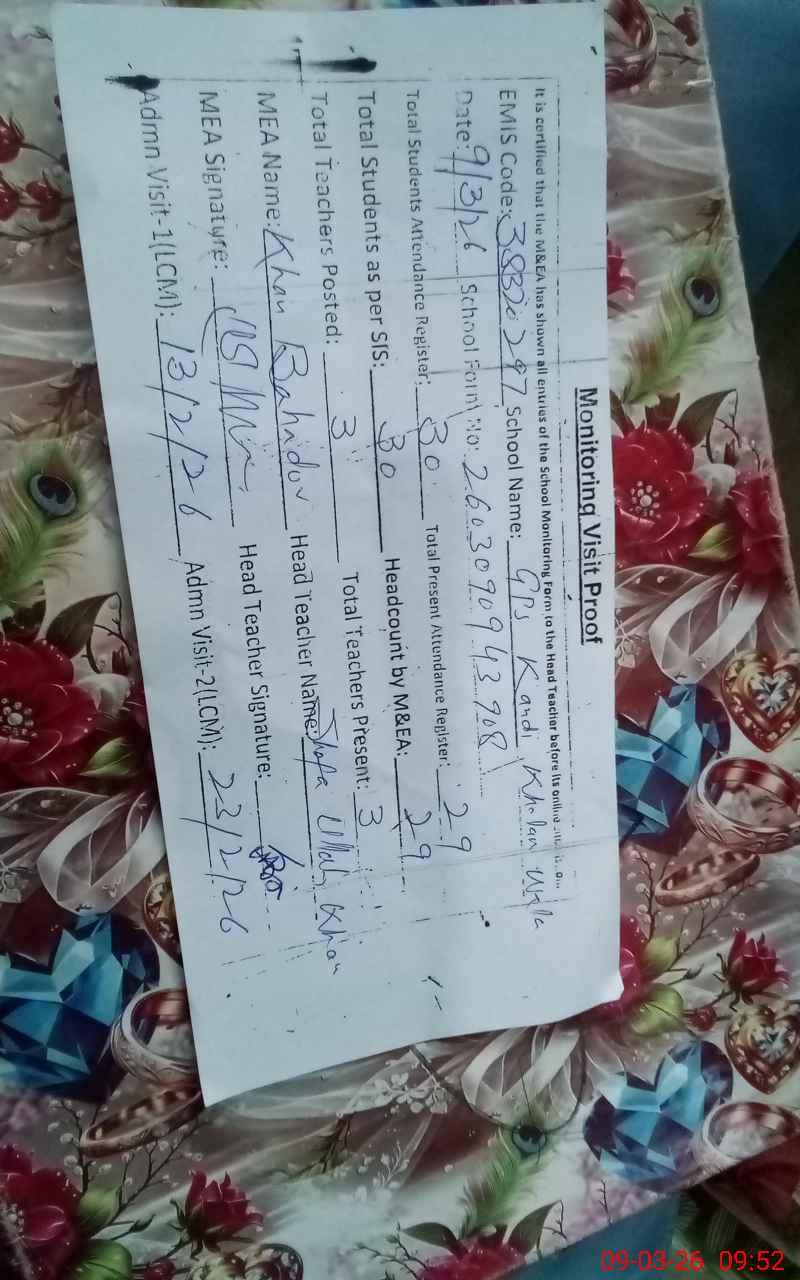 Monitoring Visit Proof
It is certified that the M&EA has shown all entries of the School Monitoring Form to the Head Teacher before its online
EMIS Code: 38320297 School Name: GPS Kandi Khulan Wala
Date: 9/3/26 School Form No: 2603090943908
Total Students Attendance Register: 30 Total Present Attendance Register: 29
Total Students as per SIS: 30 Headcount by M&EA: 29
Total Teachers Posted: 3 Total Teachers Present: 3
MEA Name: Khan Bahadur Head Teacher Name: Ullah Khan
MEA Signature: Head Teacher Signature:
Admn Visit-1(LCM): 13/2/26 Admn Visit-2(LCM): 23/2/26
09-03-26 09:52